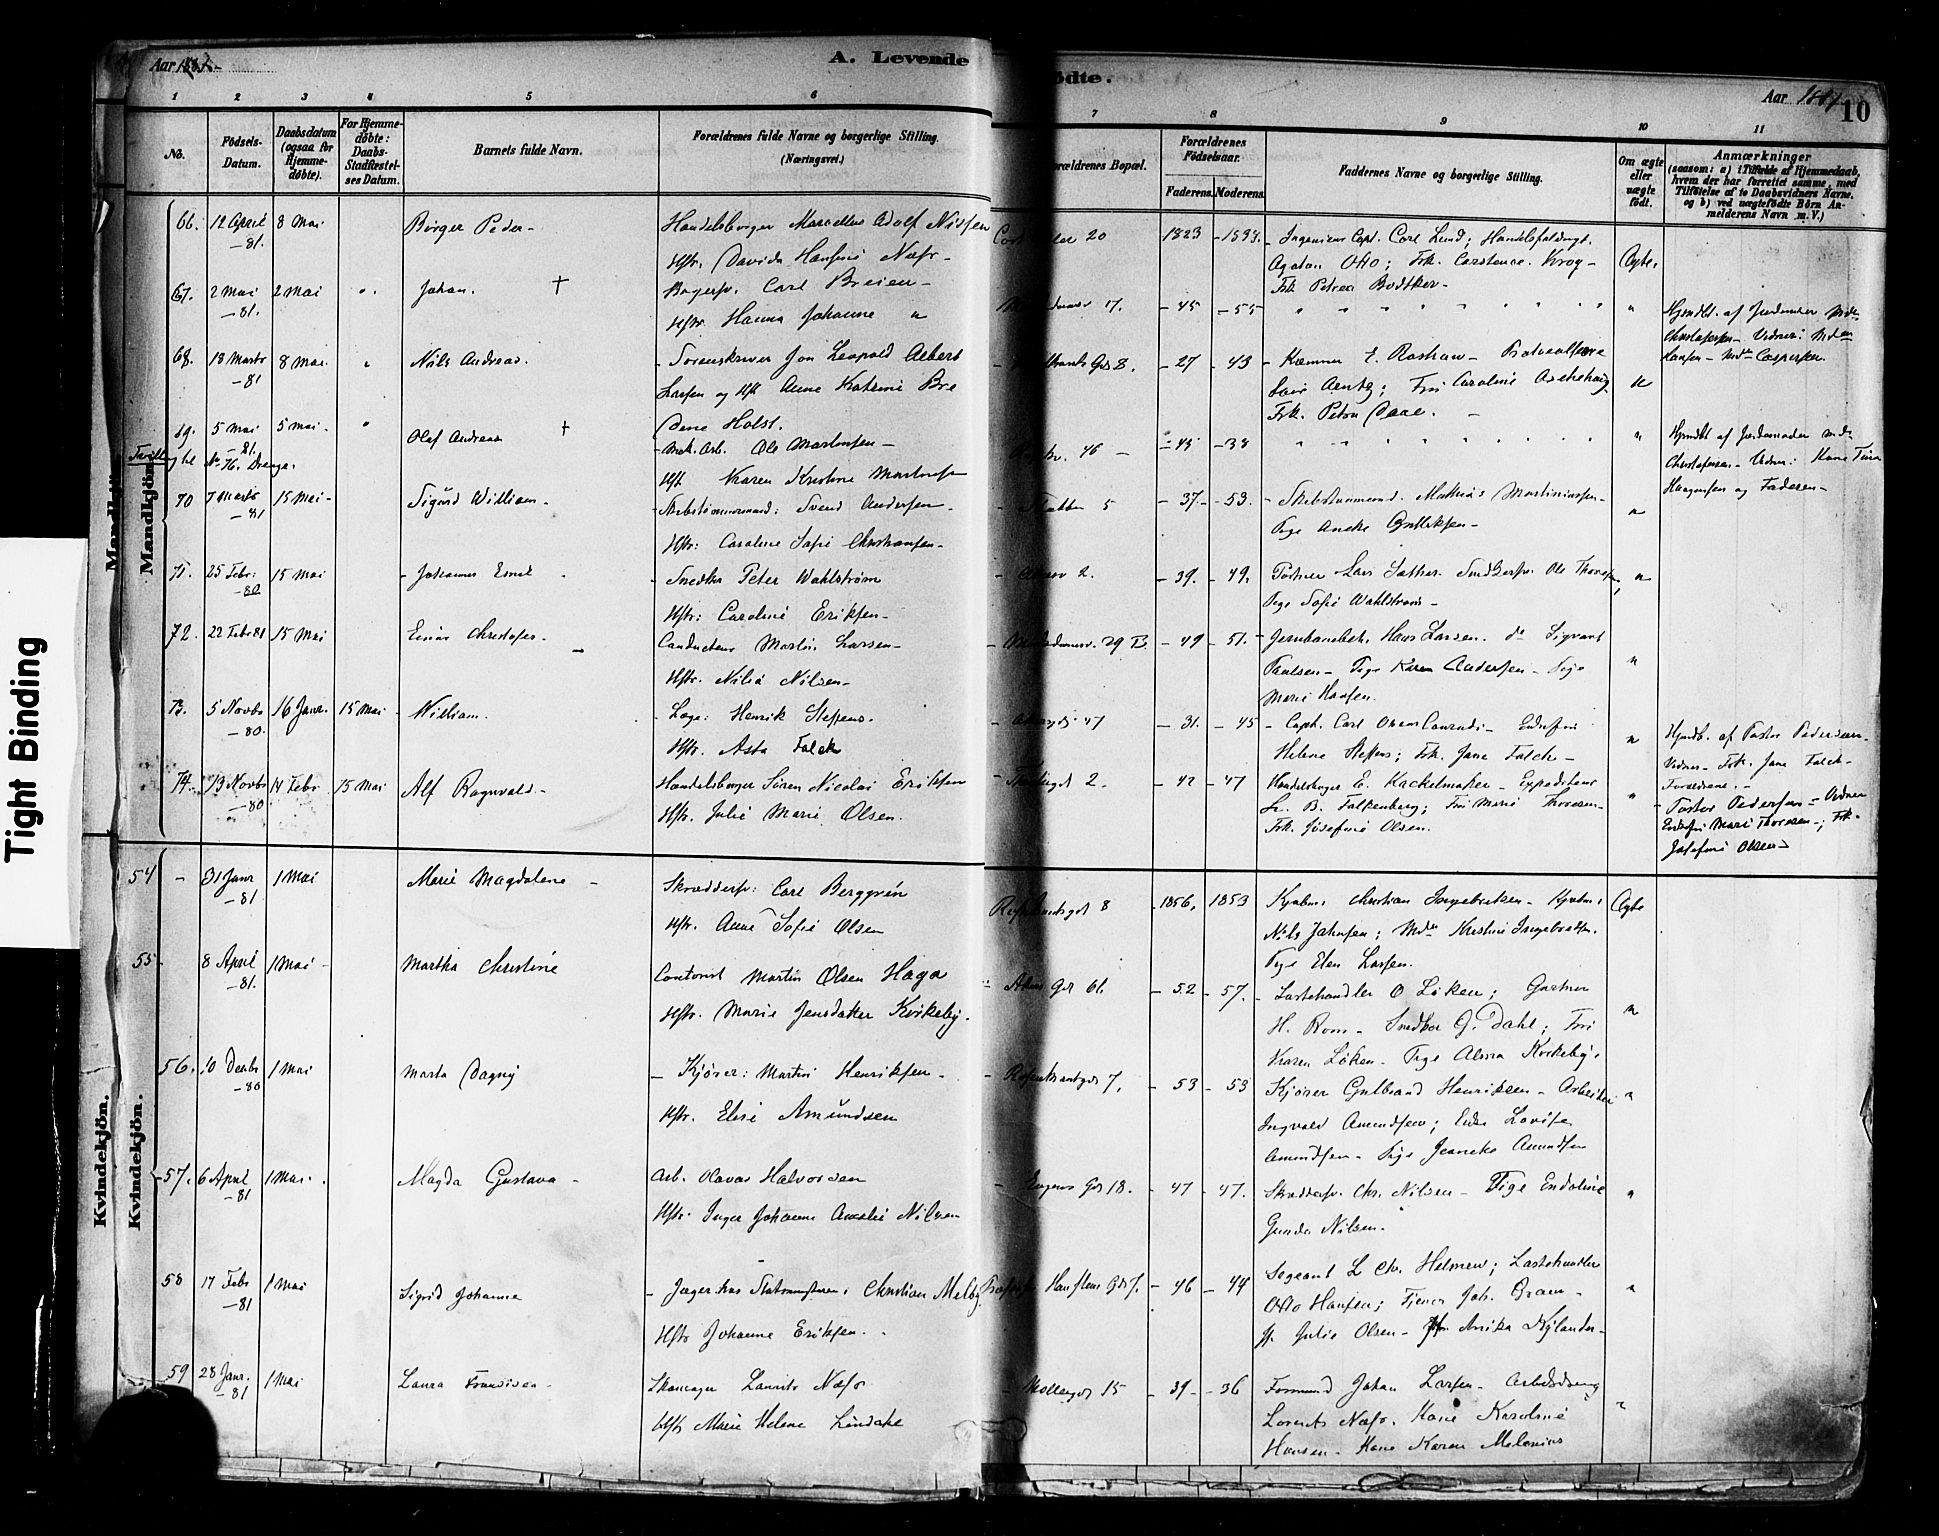 Aar 1881
A. Levende
1 2 3 4 5 6
No.
Födsels-
Datum.
Daabsdatum
(ogsaa for
Hjemme-
døbte).
For Hjemme-
døbte:
Daabs-
Stadfæstel-
ses Datum.
Barnets fulde Navn.
Forældrenes fulde Navne og borgerlige Stilling.
(Næringsvei.)
Mandkjön.
Mandkjön.
66. 12 April 8 Mai Börger Peder - Handelsborger Marcellus Adolf Nilsen
- 81. Hstr. Davida Hansine Næss -
67. 2 Mai 2 Mai " Johan. † Bagersv. Carl Breien -
- 81. Hstr. Hanna Johanne "
68. 18 Marts 8 Mai " Nils Andreas. - Sorenskriver Jon Leopold Aelert
- 81 Larsen og Hst Anne Katrine Bre
dene Holst.
69. 5 Mai 5 Mai - " Olaf Andreas † Mek. Arb. Ole Martinsen -
- 81.
Tvilling til No 76. Drenge. Hst. Karen Kristine Martinsen
70 7 Marts 15 Mai - Sigurd William - - Skibstömmermand: Svend Andersen -
- 81 Hstr: Caroline Sofie Christiansen -
71. 25 Febr: 15 Mai - Johannes Emil - - Snedker Peter Wahlström
- 80 Hstr: Caroline Eriksen -
72. 22 Febr 81 15 Mai Einar Christofer - Conducteur Martin Larsen -
Hstr. Nilia Nilsen -
73. 5 Novbr 16 Janr. 15 Mai - William. - Læge: Henrik Steffens.
- 80. Hstr. Asta Falck
74. 13 Novbr 14 Febr. 15 Mai Alf Ragnvald - Handelsborger Sören Nicolai Eriksen
- 80 Hstr. Julie Marie Olsen.
Kvindekjön.
Kvindekjön.
54 - 31 Janr 1 Mai Marie Magdalene - Skrædersv: Carl Berggrén
- 81 Hstr. Anne Sofie Olsen
55 - 8 April 1 Mai - Martha Christine Contorist Martin Olsen Haga
- 81. Hstr. Marie Jensdatter Kirkeby.
56. 10 Decbr 1 Mai Marta Dagny - Kjörer: Martin Henriksen -
- 80 Hstr. Elise Amundsen
57. 6 April 1 Mai . Magda Gustava - Arb. Olavas Halvorsen
- 81 Hstr. Inger Johanne Amalie Nilsen
58 17 Febr 1 Mai Sigrid Johanne - Jæger hos Statsministeren: Christian Melby
- 81 Hstr Johanne Eriksen.
59 28 Janr. 1 Mai Laura - Skomager Laurits Næss
- 81 Hstr Marie Helene
ödte.
Aar 1881 10
7 8 9 10 11
orældrenes Bopæl.
Forældrenes
Födselsaar.
Faderens. Moderens.
Faddernes Navne og borgerlige Stilling.
Om ægte
eller
uægte
födt.
Anmærkninger
(saasom: a) i Tilfælde af Hjemmedaab,
hvem der har forrettet samme, med
Tilföielse af to Daabsvidners Navne,
og b) ved uægtefödte Börn An-
melderens Navn m. V.)
20 1823 - 1838. - Ingeniör Capt. Carl Lund; Handelsfuldmgt.
Agaton Otto; Frk. Constance Krog - Ægte.
Frk Petrea Bödtker -
17. - 45 - 55 " " " " " " " " " Hjmdbt. af Jordemoder Mde
Christofersen - Vidner: Mdm
Hansen - Mdm Caspersen.
8. - 27 - 43 - Kæmner E. Rosharv -
Arntz; Fru Caroline "
Frk. Petra Daae. -
46 - - 45 - 38 " " " " " " " " " Hjmdbt af Jordemoder Mde
Christofersen - Vidner: Kone Tina
Haagensen og Faderen -
5 - 37. - 53. - Skibstømmermd. Mathias Martiniussen -
Pige Anette Gulliksen - "
2. - 39. - 49. Portner Lars Sæther - Snedkersv. Ole Thoresen, "
Pige Sofie Wahlström -
29 B. - 49 - 51. - Jernbanebet. Hans Larsen. do Sigvart
Paulsen - Pige Karen Andersen - Pige "
Marie Hansen.
47 - 31. - 45 - Capt. Carl Conradi - Enkefru
Helene Steffens; Frk. Jane Falck - " Hjmdb. af Pastor Pedersen -
Vidner - Frk. Jane Falck -
Forældrene. -
2. - 42 - 47 Handelsborger E. Kackelmaker - Expediteur
L. B. Falkenberg; Fru Marie Thoresen - " - Pastor Pedersen - Vidner
Frk. Josefine Olsen. Enkefru Marie Thoresen -; Frk.
Josefine Olsen -
8 1856. 1853 Kjöbm: Christian Ingebretsen - Kjöbm: Ægte
Nils Johnsen; Mdm Kristine Ingebretsen.
Pige Elen Larsen.
61. - 52 - 57. - Lastehandler O Löken; Gartner
H. Rom - Snedker G. Dahl; Fru "
Karen Löken - Pige Alma Kirkeby.
- Rosenkrantzgd 7. - 53 - 53 Kjörer Gulbrand Henriksen - Arbeider "
Ingvald Amundsen; Enke Lovise
Amundsen - Pige Jeanette Amundsen
18. - 47 - 47. Skrædersv. Chr. Nilsen - Pige Endoline "
Gunda Nilsen.
Hansteens Gd 7. - 46 - 44 Sergeant L Chr. Helmen; Lastehandler
Otto Hansen; Tjener Joh. Gram - "
Julie Olsen - Anika Nylander -
- Möllergd 15 - 39 - - 36 Formand Johan Larsen - Arbeidsdreng
Lorents Næss. Kone Karoline "
Hansen - Kone Karen Melanius
Tight Binding